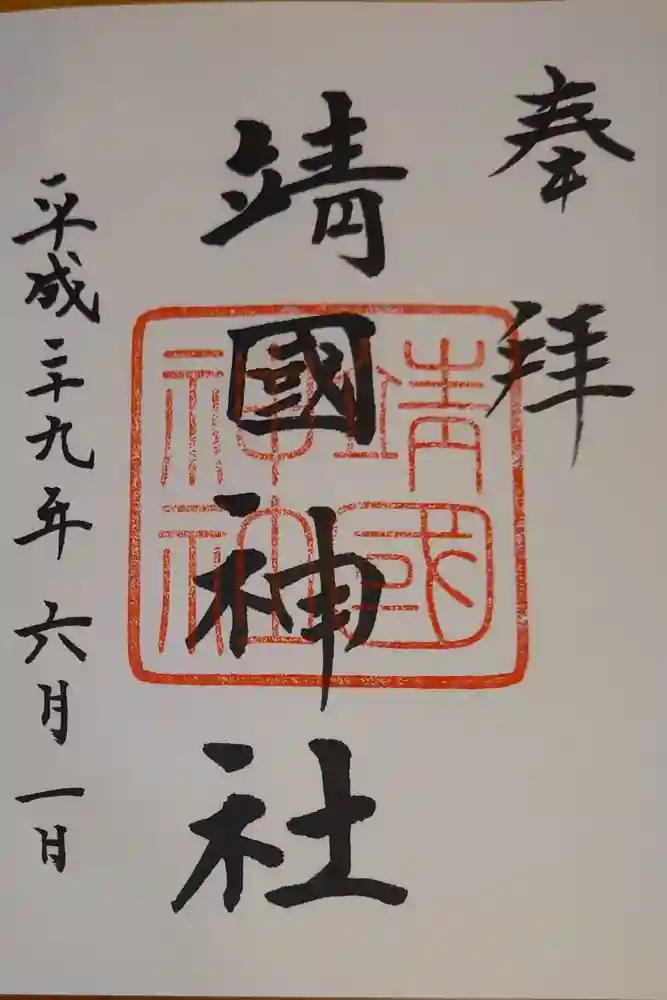 奉拝
靖國神社
靖國
神社
平成二十九年六月一日